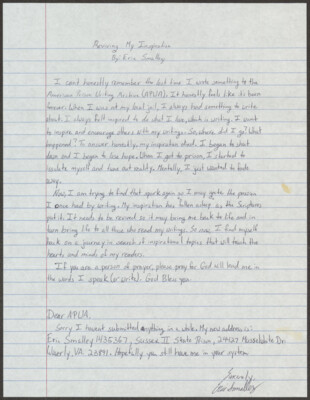 Reviving My Inspiration
By Eric Smalley
I can't honestly remember the last time I wrote something to the
American Prison Writing Archive (APWA). It honestly feels like it's been
forever. When I was at my local jail, I always had something to write
about. I always felt inspired to do what I love, which is writing. I want
to inspire and encourage others with my writings. So, where did I go? What
happened? To answer honestly, my inspiration died. I began to shut
down and I began to lose hope. When I got to prison, I started to
isolate myself and tune out reality. Mentally, I just wanted to fade
away.
Now, I am trying to find that spark again so I may ignite the passion
I once had by writing. My inspiration has fallen asleep as the Scriptures
put it. It needs to be revived so it may bring me back to life and in
turn bring life to all those who read my writings. So now, I find myself
back on a journey in search of inspirational topics that will touch the
hearts and minds of my readers.
If you are a person of prayer, please pray for God will lead me in
the words I speak (or write). God Bless you.
Dear APWA,
Sorry I haven't submitted anything in a while. My new address is:
Eric Smalley 1435367, Sussex II State Prison, 24427 Musselwhite Dr.
Waverly, VA 23891. Hopefully you still have me in your system.
Sincerely,
Eric Smalley